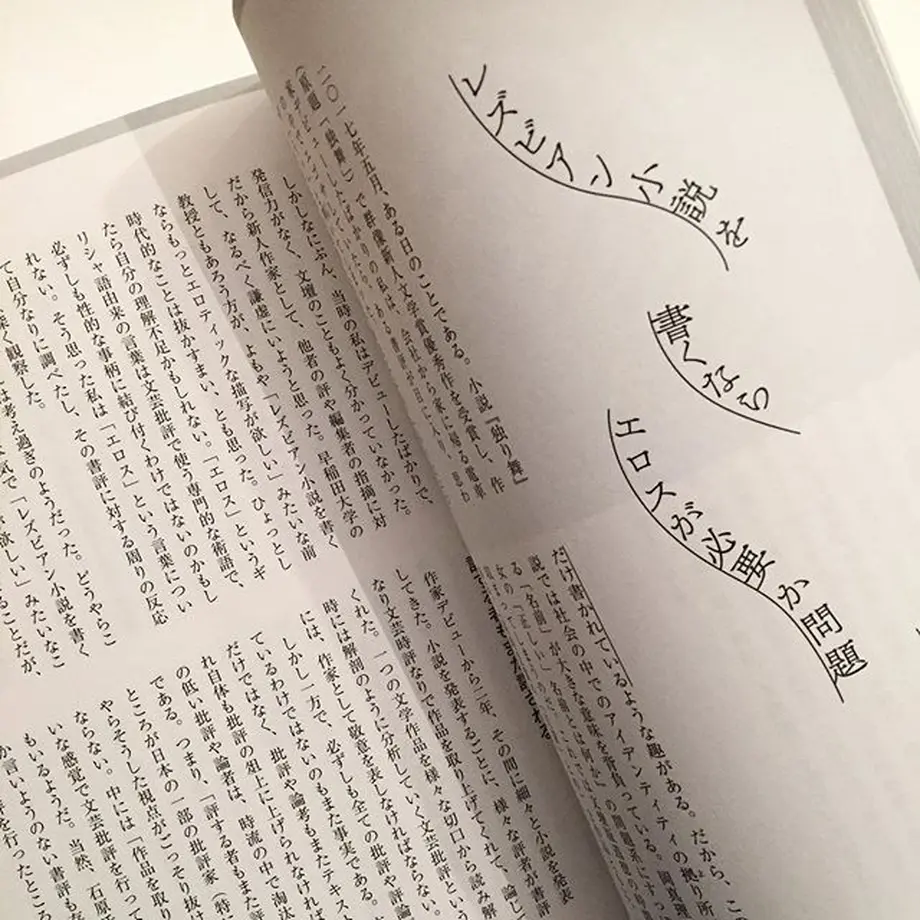 レズビアン小説を
書くなら
エロスが必要か問題
二〇一七年五月、ある日のことである。小説『独り舞』
(原題「独舞」)で群像新人文学賞優秀作を受賞し、作
家デビューしたばかりの私は、会社から家に帰る電車
ある書評が目に入り、思わ
だけ書かれているような趣がある。だから、こ
説では社会の中でのアイデンティティの拠り所
る「名前」が大きな意味を背負っている。
しかしなにぶん、当時の私はデビューしたばかりで、
発信力がなく、文壇のこともよく分かっていなかった。
だから新人作家として、他者の評や編集者の指摘に対
して、なるべく謙虚にいようと思った。早稲田大学の
教授ともあろう方が、よもや「レズビアン小説を書く
ならもっとエロティックな描写が欲しい」みたいな前
時代的なことは抜かすまい、とも思った。ひょっとし
たら自分の理解不足かもしれない。「エロス」というギ
リシャ語由来の言葉は文芸批評で使う専門的な術語で、
必ずしも性的な事柄に結び付くわけではないのかもし
れない。そう思った私は「エロス」という言葉につい
て自分なりに調べたし、その書評に対する周りの反応
深く観察した。
は考え過ぎのようだった。どうやらこ
気で「レズビアン小説を書く
欲しい」みたいなこ
ることだが、
作家デビューから二年、その間に細々と小説を発表
してきた。小説を発表するごとに、様々な評者が書評
なり文芸時評なりで作品を取り上げてくれて、論じて
くれた。一つの文学作品を様々な切口から読み解
時には解剖のように分析していく文芸批評という
には、作家として敬意を表しなければならない。
しかし一方で、必ずしも全ての批評や評論
ているわけではないのもまた事実である。
だけではなく、批評や論考もまたテキスト
れ自体も批評の俎上に上げられなければ
の低い批評や論者は、時流の中で淘汰
である。つまり、「評する者もまた評
ところが日本の一部の批評家(特
やらそうした視点がごっそり抜け
ならない。中には「作品を取り
いな感覚で文芸批評を行って
もいるようだ。当然、石原
か言いようのない書評も
を行ったところ